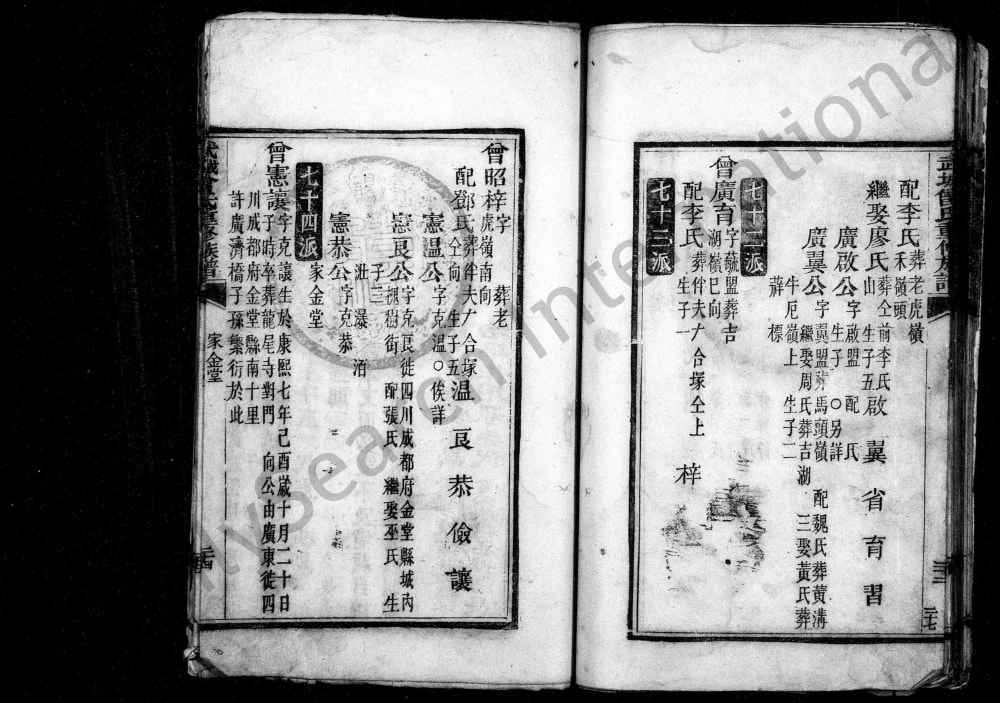 配李氏葬老虎嶺
禾嶺頭
繼娶廖氏葬仝前李氏
山 生子五啟 翼 省 育 習
廣啟公字啟盟 配 氏
生子 ○另詳
廣翼公字翼盟葬馬頭嶺 配魏氏葬黃溝
繼娶周氏葬吉湖 三娶黃氏葬
牛厄嶺上 生子二
薛 標
七十二派
曾廣育字毓盟葬吉
湖嶺巳向
配李氏葬伴夫屴合塚仝上
生子一 梓
七十三派
曾昭梓字 葬老
虎嶺南向
配鄧氏葬伴夫屴合塚
仝向 生子五温 良 恭 儉 讓
憲温公字克温○俟詳
憲良公字克良徙四川成都府金堂縣城內
槐樹街 配張氏 繼娶巫氏 生
子三
沚 瀑 滔
憲恭公字克恭
家金堂
七十四派
曾憲讓字克讓生於康熙七年己酉歲十月二十日
子時卒葬龍尾寺對門 向公由廣東徙四
川成都府金堂縣南十里
許廣濟橋子孫繁衍於此
家金堂